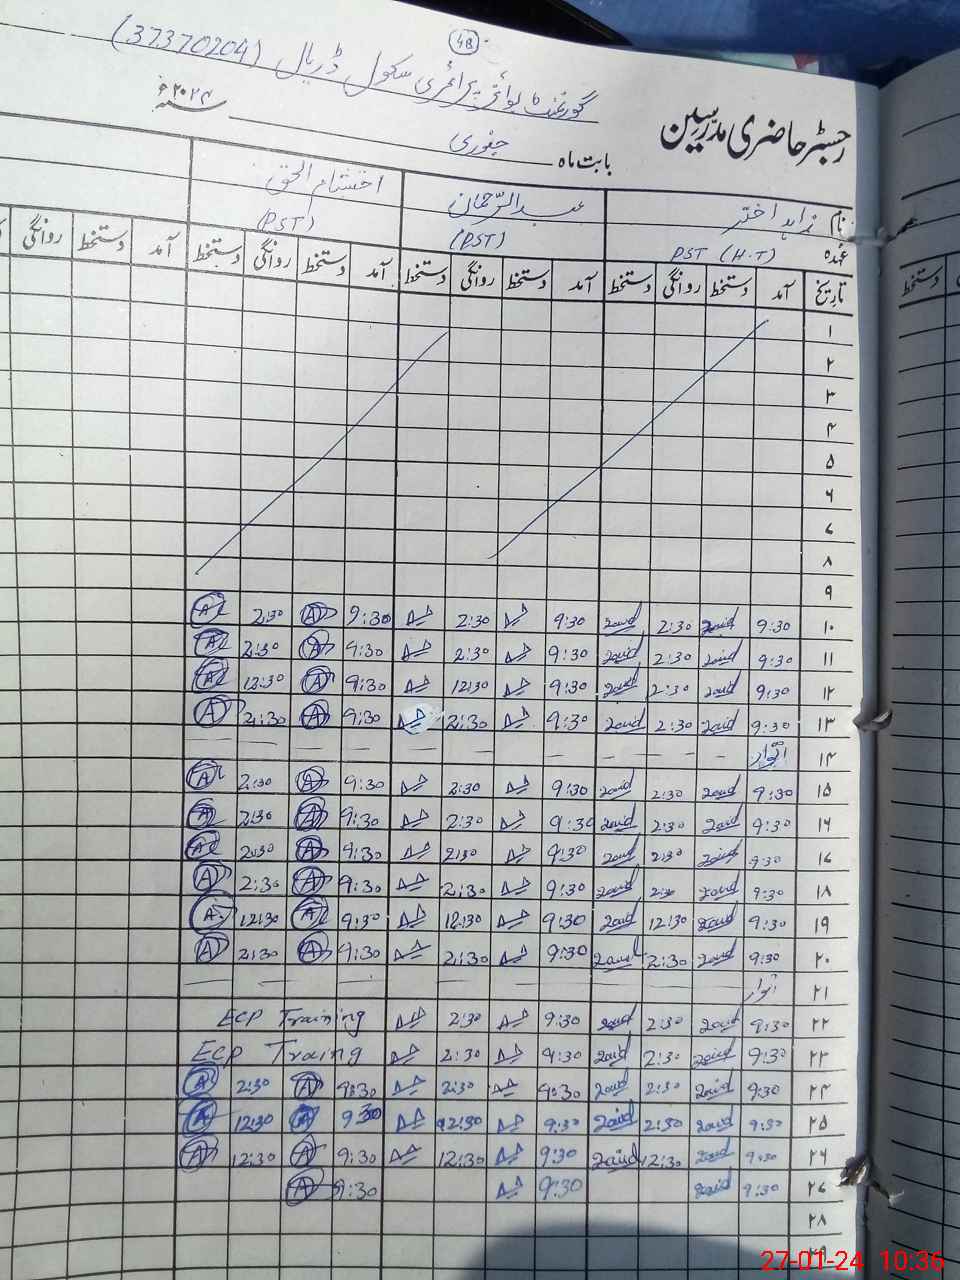 48
گورنمنٹ بوائز پرائمری سکول ڈریال (37370204)
رجسٹر حاضری مدرسین
بابت ماہ جنوری ۲۰۲۴ء
نام زاہد اختر عبدالرحمان احتشام الحق
عہدہ PST (H.T) (PST) (PST)
تاریخ آمد دستخط روانگی دستخط آمد دستخط روانگی دستخط آمد دستخط روانگی دستخط آمد دستخط روانگی
۱
۲
۳
۴
۵
۶
۷
۸
۹
۱۰ 9:30 Zaid 2:30 Zaid 9:30 2:30 9:30 A 2:30 A
۱۱ 9:30 Zaid 2:30 Zaid 9:30 2:30 9:30 A 2:30 A
۱۲ 9:30 Zaid 2:30 Zaid 9:30 12:30 9:30 A 12:30 A
۱۳ 9:30 Zaid 2:30 Zaid 9:30 2:30 9:30 A 2:30 A
۱۴ اتوار
۱۵ 9:30 Zaid 2:30 Zaid 9:30 2:30 9:30 A 2:30 A
۱۶ 9:30 Zaid 2:30 Zaid 9:30 2:30 9:30 A 2:30 A
۱۷ 9:30 Zaid 2:30 Zaid 9:30 2:30 9:30 A 2:30 A
۱۸ 9:30 Zaid 2:30 Zaid 9:30 2:30 9:30 A 2:30 A
۱۹ 9:30 Zaid 12:30 Zaid 9:30 12:30 9:30 A 12:30 A
۲۰ 9:30 Zaid 2:30 Zaid 9:30 2:30 9:30 A 2:30 A
۲۱ اتوار
۲۲ 9:30 Zaid 2:30 Zaid 9:30 2:30 ECP Training
۲۳ 9:30 Zaid 2:30 Zaid 9:30 2:30 ECP Training
۲۴ 9:30 Zaid 2:30 Zaid 9:30 2:30 9:30 A 2:30 A
۲۵ 9:30 Zaid 2:30 Zaid 9:30 12:30 9:30 A 12:30 A
۲۶ 9:30 Zaid 12:30 Zaid 9:30 12:30 9:30 A 12:30 A
۲۷ 9:30 Zaid 9:30 9:30 A
۲۸
۲۹
دستخط
27-01-24 10:36